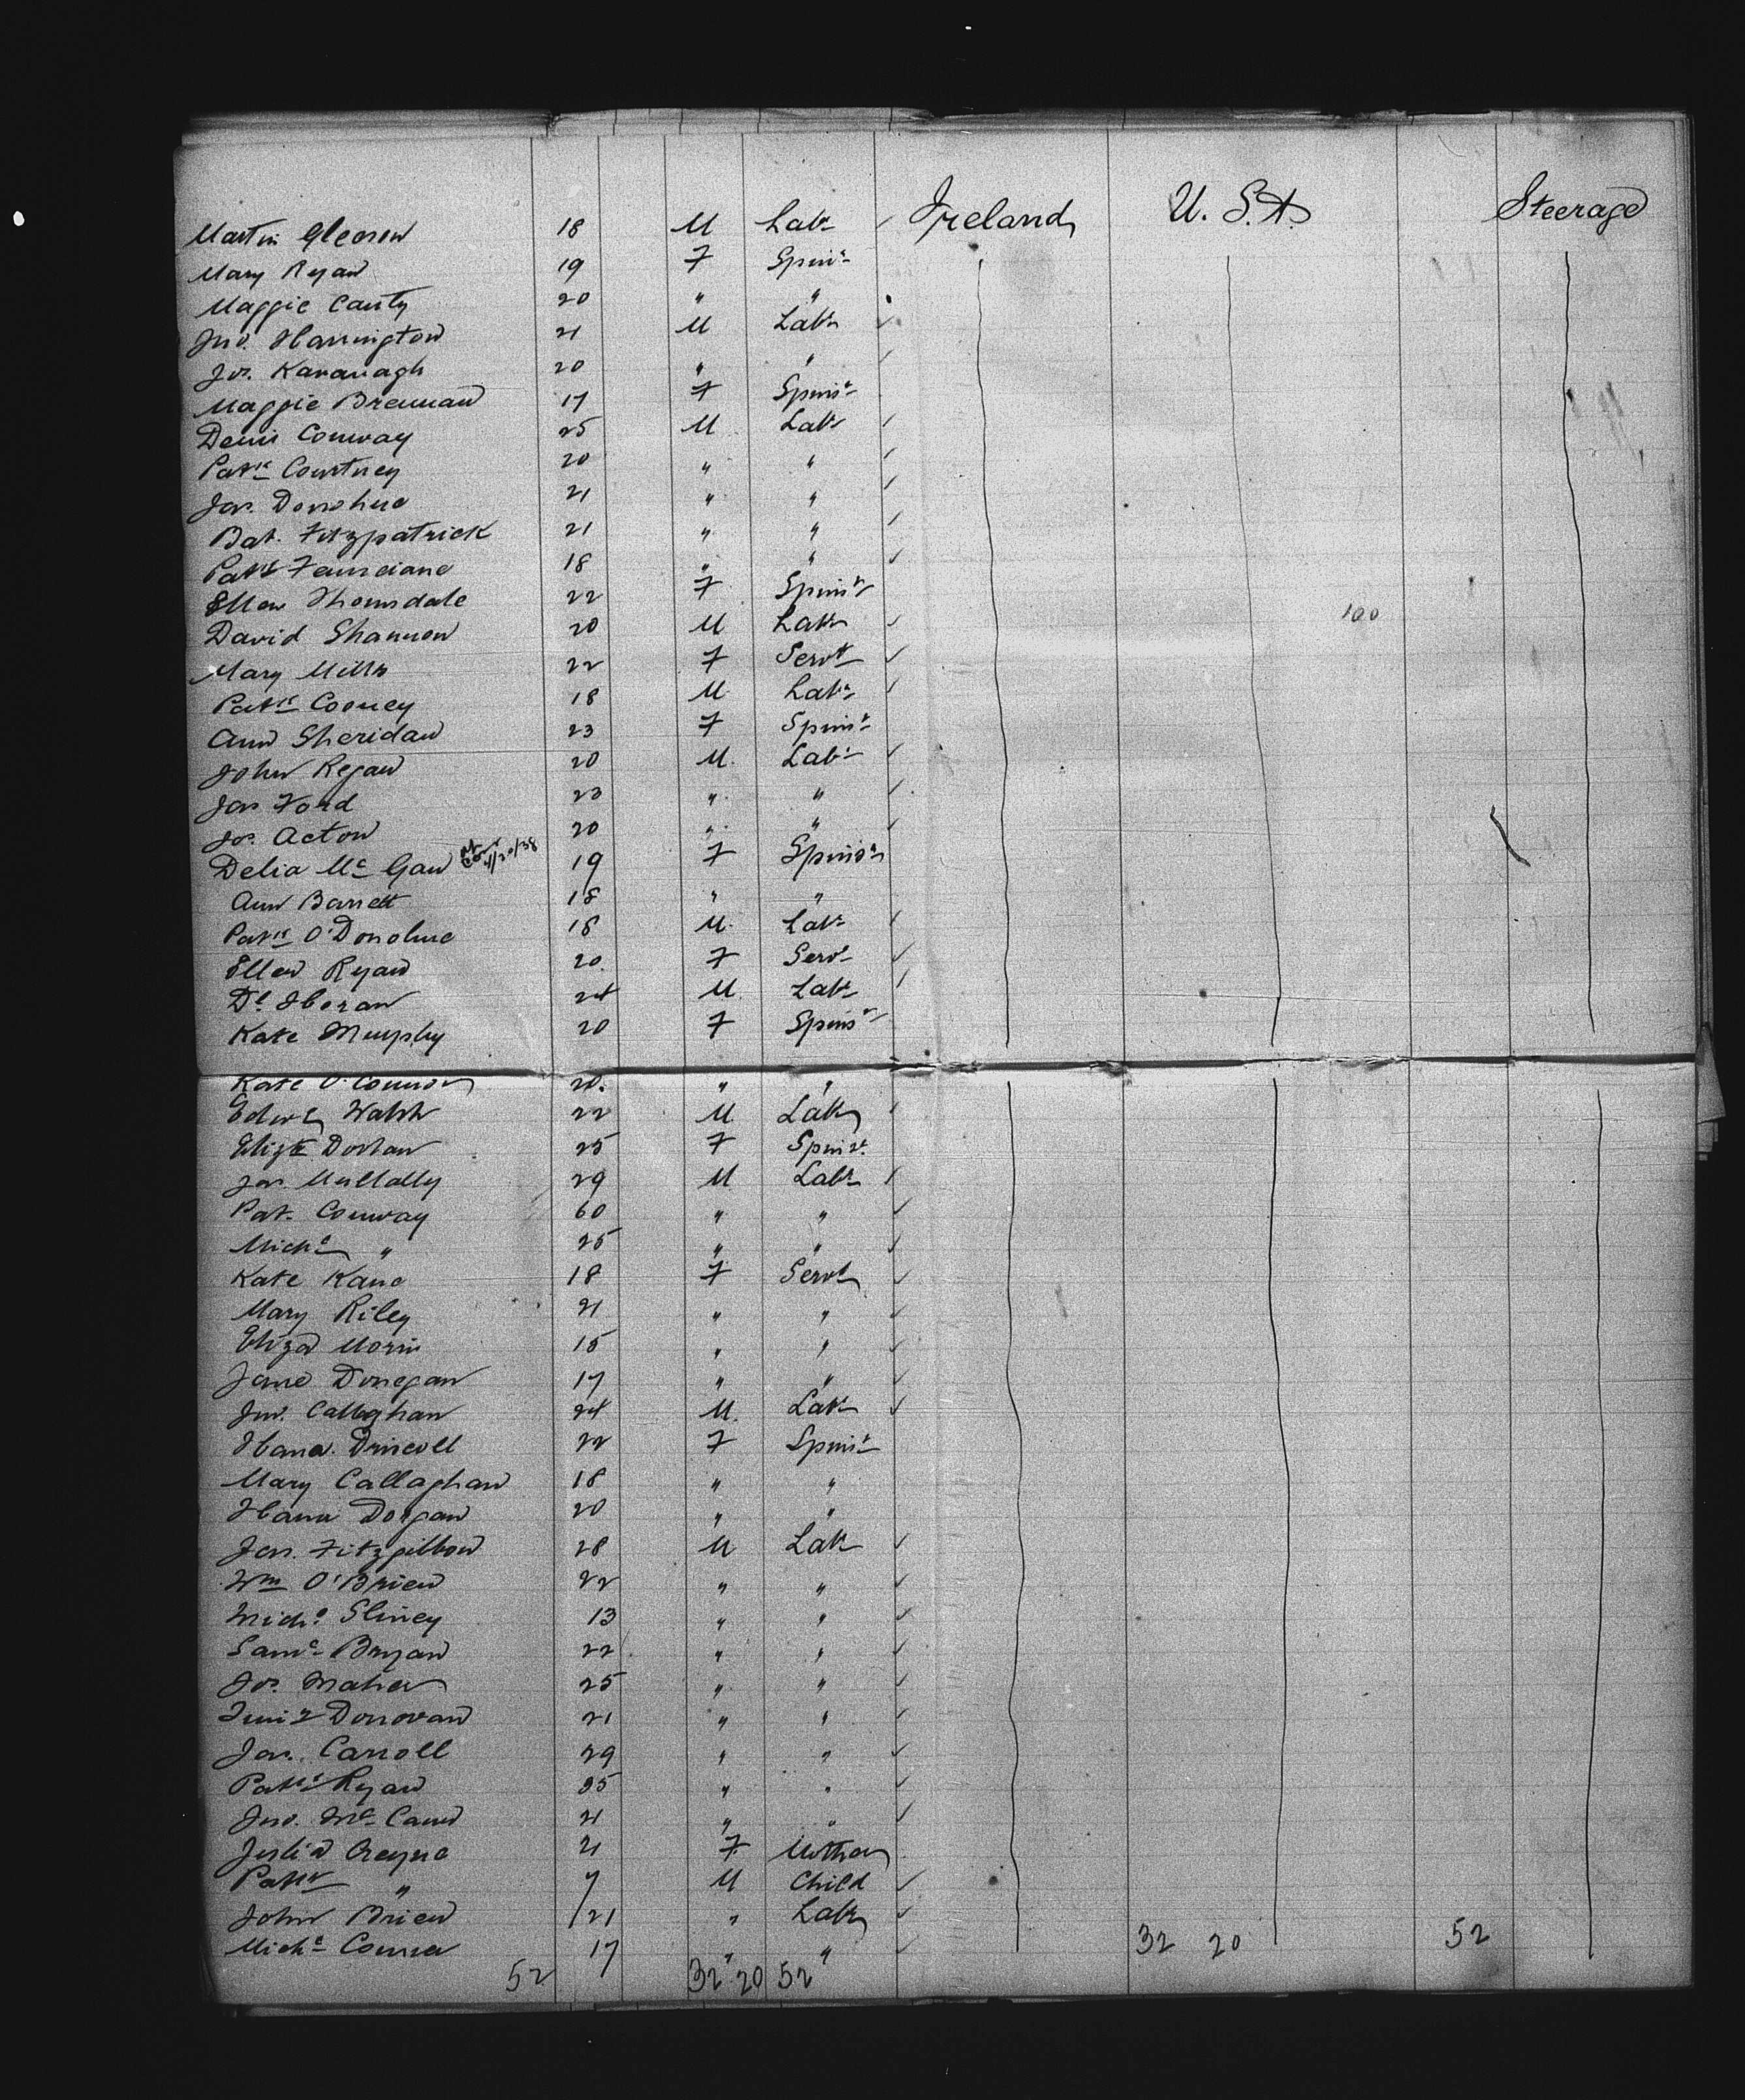 Martin Gleeson 18 M Labr Ireland U.S.A. Steerage
Mary Ryan 19 F Spinr
Maggie Canty 20 " "
Jno. Harrington 21 M Labr
Jos. Kavanagh 20 " "
Maggie Brennan 17 F Spinr
Denis Conway 25 M Labr
Patk Courtney 20 " "
Jas. Donohue 21 " "
Bat. Fitzpatrick 21 " "
Patk 18 " "
Ellen Thornsdale 22 F Spinr
David Shannon 20 M Labr 100
Mary Mills 22 F Servt
Patk Cooney 18 M Labr
Ann Sheridan 23 F Spinr
John Regan 20 M Labr
Jas Ford 23 " "
Jos. Acton 20 " "
Delia Mc Gan 4/20/38 19 F Spinr
Ann Barrett 18 " "
Patk O'Donohue 18 M Labr
Ellen Ryan 20 F Servt
Dl Horan 24 M Labr
Kate Murphy 20 F Spinr
Kate O'Connor 20 " "
Edwd Walsh 22 M Labr
Elizth Dorhan 25 F Spinr
Jas. Mullally 29 M Labr
Pat. Conway 60 " "
Michl " 25 " "
Kate Kane 18 F Servt
Mary Riley 21 " "
Eliza Morris 15 " "
Jane Donegan 17 " "
Jno. Callaghan 24 M Labr
Hana. Driscoll 22 F Spinr
Mary Callaghan 18 " "
Hana Dorgan 20 " "
Jas. Fitzgibbon 28 M Labr
Wm O'Brien 22 " "
Michl Sliney 13 " "
Saml Bryan 22 " "
Jos. Maher 25 " "
Donovan 21 " "
Jas. Carroll 29 " "
Patk Ryan 35 " "
Jno. Mc Cann 21 " "
Julia Creyne 21 F Mother
Patk " 7 M Child
John Brien 21 " Labr
Michl Connor 17 " "
52 32 20 52 32 20 52